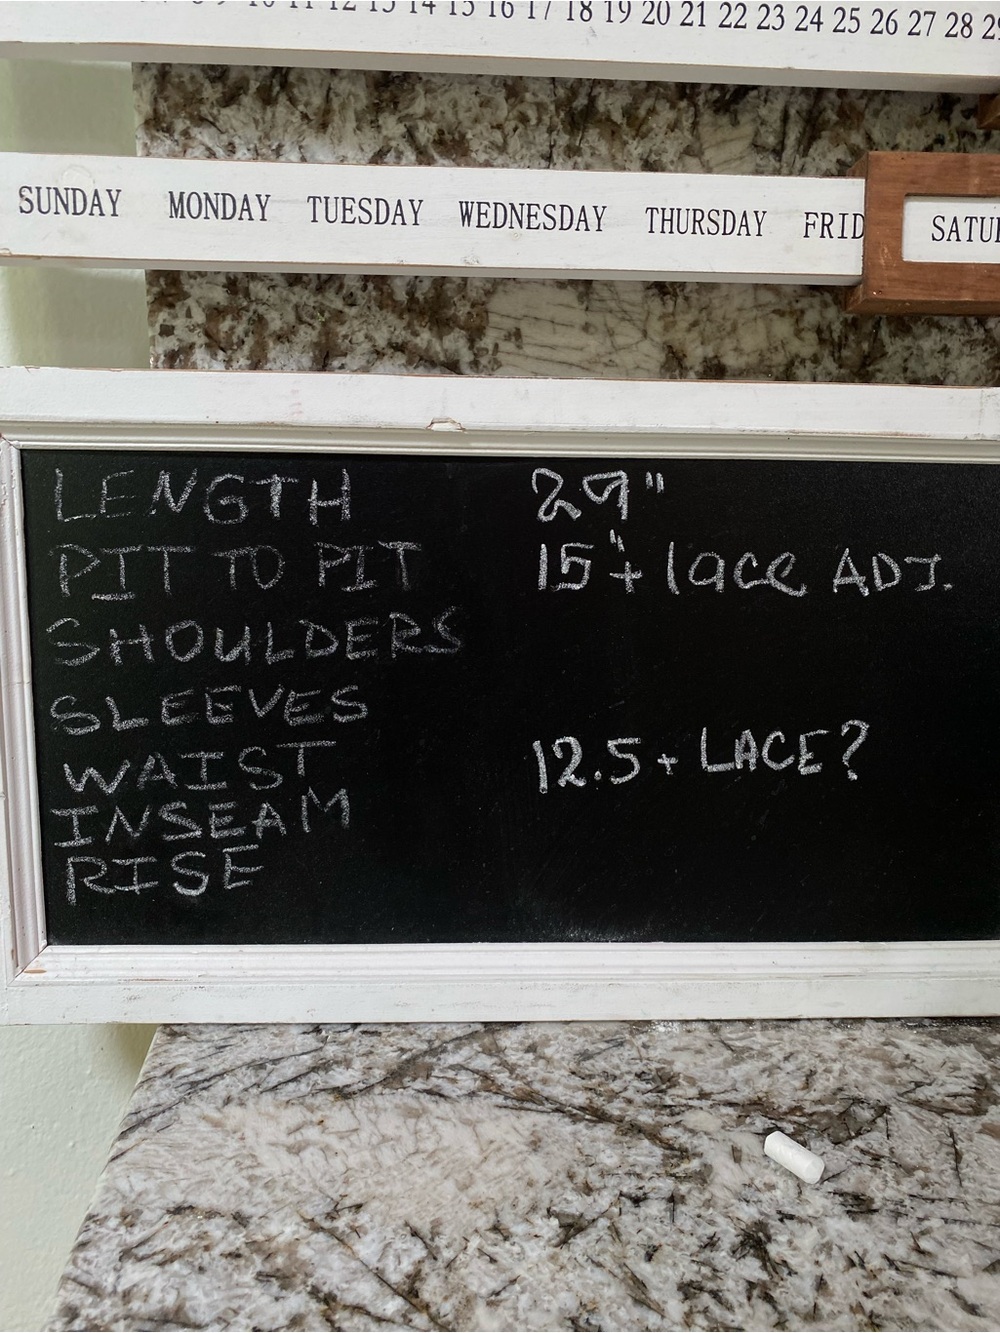 10 11 12 13 14 15 16 17 18 19 20 21 22 23 24 25 26 27 28 29
SUNDAY MONDAY TUESDAY WEDNESDAY THURSDAY FRID SATU
LENGTH 29"
PIT TO PIT 15"+ lace ADJ.
SHOULDERS
SLEEVES
WAIST 12.5 + LACE?
INSEAM
RISE